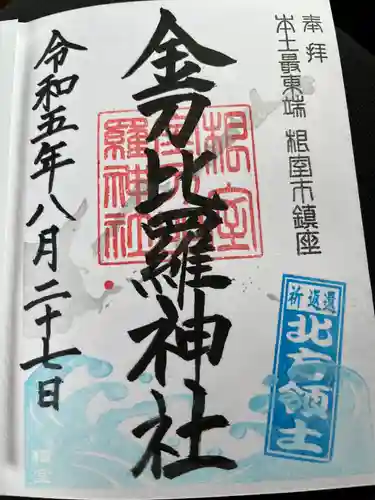 奉拝
本土最東端 根室市鎮座
金刀比羅神社
根室
金刀比
羅神社
祈返還
北方領土
令和五年八月二十七日